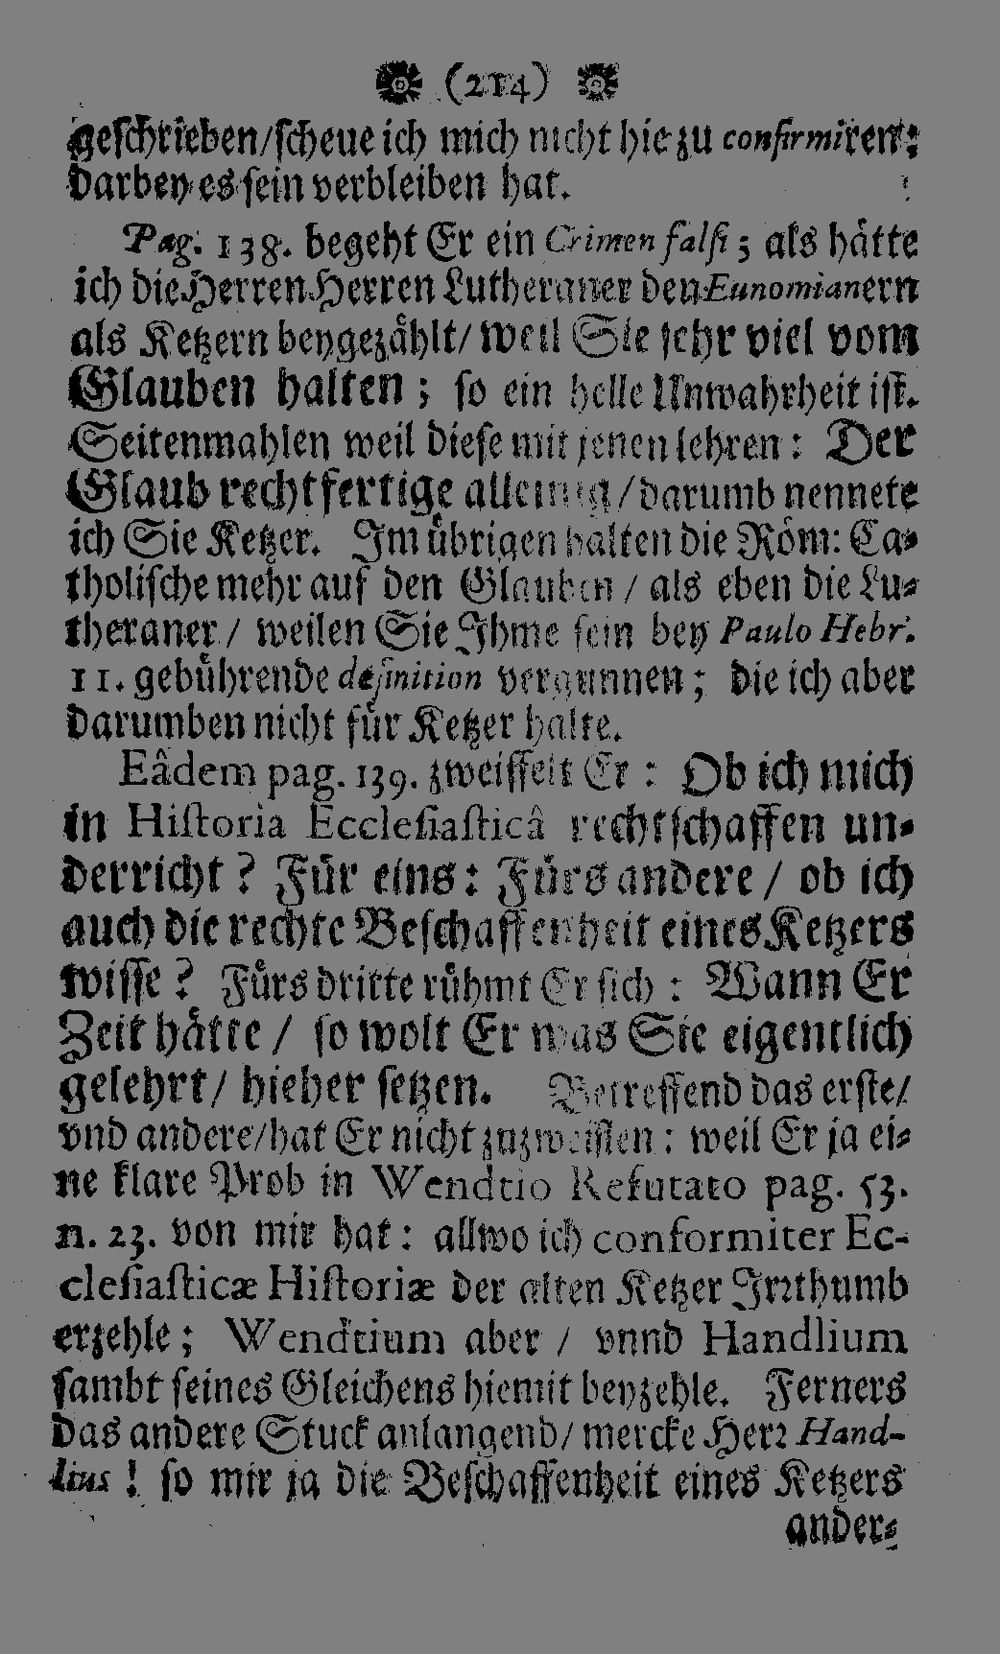 (214)
geschrieben/scheue ich mich nicht hie zu confirmiren;
darbey es sein verbleiben hat.
Pag. 138. begeht Er ein Crimen falsi; als hätte
ich die Herren Herren Lutheraner den Eunomianern
als Ketzern beygezählt/ weil Sie sehr viel vom
Glauben halten; so ein helle Unwahrheit ist.
Seitenmahlen weil diese mit jenen lehren: Der
Glaub rechtfertige alleinig/darumb nennete
ich Sie Ketzer. Im übrigen halten die Röm: Ca-
tholische mehr auf den Glauben / als eben die Lu-
theraner/ weilen Sie Ihme sein bey Paulo Hebr.
11. gebührende definition vergunnen; die ich aber
darumben nicht für Ketzer halte.
Eâdem pag. 139. zweiffelt Er: Ob ich mich
in Historia Ecclesiasticâ rechtschaffen un-
derricht? Für eins: Fürs andere / ob ich
auch die rechte Beschaffenheit eines Ketzers
wisse? Fürs dritte rühmt Er sich: Wann Er
Zeit hätte / so wolt Er was Sie eigentlich
gelehrt/ hieher setzen. Betreffend das erste/
vnd andere/hat Er nicht zuzweifflen: weil Er ja ei-
ne klare Prob in Wendtio Refutato pag. 53.
n. 23. von mir hat: allwo ich conformiter Ec-
clesiasticæ Historiæ der alten Ketzer Irrthumb
erzehle; Wendtium aber / vnnd Handlium
sambt seines Gleichens hiemit beyzehle. Ferners
das andere Stuck anlangend/ mercke Herr Hand-
lius! so mir ja die Beschaffenheit eines Ketzers
ander-